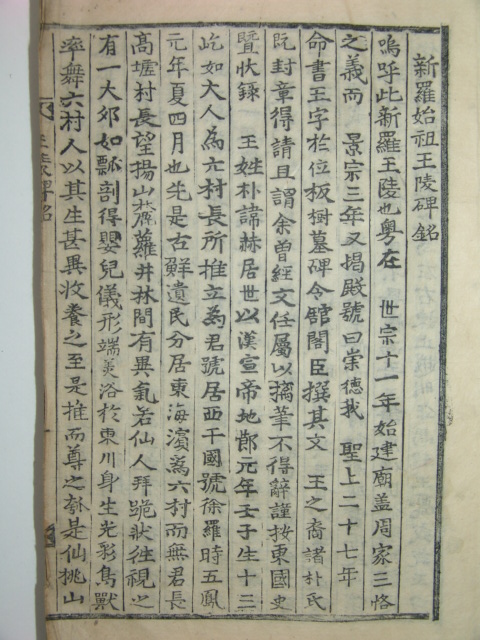 新羅始祖王陵碑銘
嗚呼此新羅王陵也粤在　世宗十一年始建廟盖周家三恪
之義而　景宗三年又揭殿號曰崇德我　聖上二十七年
命書王字於位板樹墓碑令舘閣臣撰其文　王之裔諸朴氏
既封章得請且謂余曾經文任屬以摛筆不得辭謹按東國史
曁狀錄　王姓朴諱赫居世以漢宣帝地節元年壬子生十三
屹如大人為六村長所推立為君號居西干國號徐羅時五鳳
元年夏四月也先是古鮮遺民分居東海濱為六村而無君長
高墟村長望揚山麓蘿井林間有異氣若仙人拜跪狀往視之
有一大卵如瓢剖得嬰兒儀形端美浴於東川身生光彩鳥獸
率舞六村人以其生甚異收養之至是推而尊之盖是仙桃山